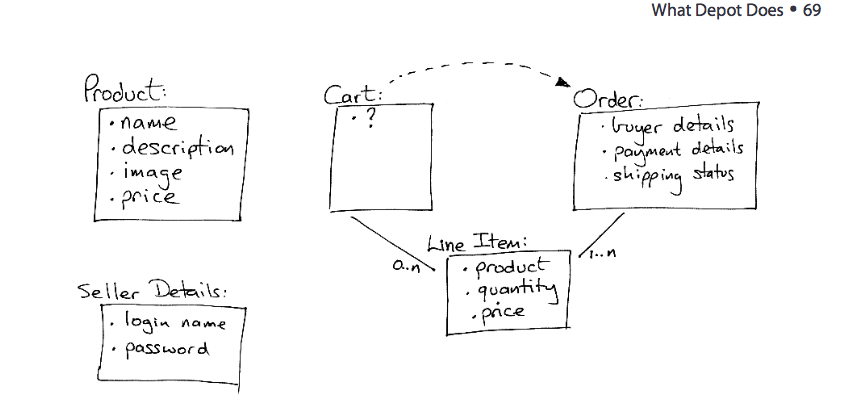 What Depot Does • 69
Product:
• name
• description
• image
• price
Cart:
• ?
Order:
• buyer details
• payment details
• shipping status
Line Item:
0..n
1..n
• product
• quantity
• price
Seller Details:
• login name
• password